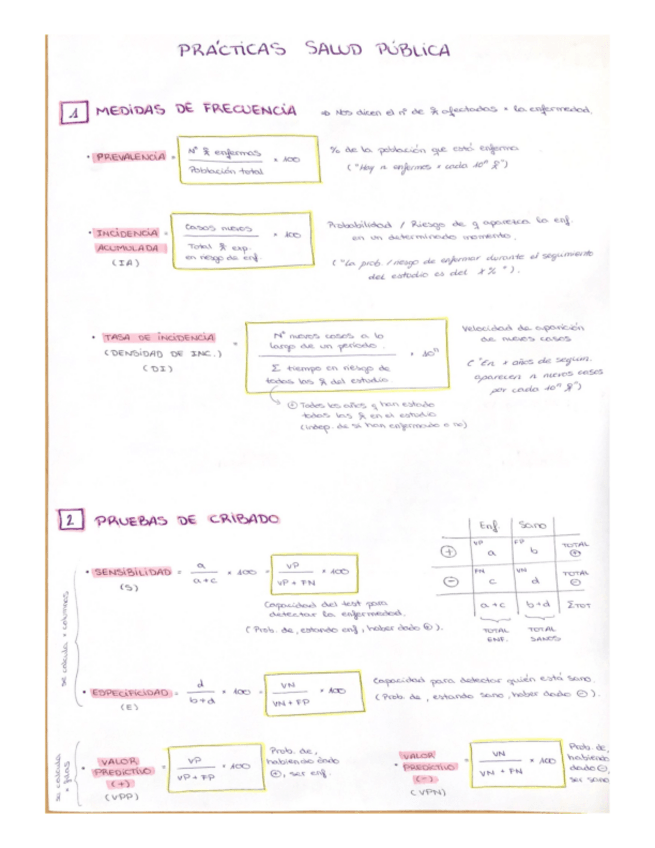 PRÁCTICAS SALUD PÚBLICA
1 MEDIDAS DE FRECUENCIA ⇒ Nos dicen el nº de afectados x la enfermedad.
• PREVALENCIA = Nº enfermas / Población total × 100
% de la población que está enferma
("Hay n enfermos x cada 10ⁿ")
• INCIDENCIA ACUMULADA (IA) = Casos nuevos / Total exp. en riesgo de enf. × 100
Probabilidad / Riesgo de q aparezca la enf.
en un determinado momento.
("La prob. / riesgo de enfermar durante el seguimiento
del estudio es del X%").
• TASA DE INCIDENCIA (DENSIDAD DE INC.) (DI) =
Nº nuevos casos a lo
largo de un periodo.
Σ tiempo en riesgo de
todas las del estudio
× 10ⁿ
Velocidad de aparición
de nuevos casos
("En x años de seguim.
aparecen n nuevos casos
por cada 10ⁿ")
Todos los años q han estado
todas las en el estudio
(indep. de si han enfermado o no)
2 PRUEBAS DE CRIBADO
Enf. Sano
⊕ VP a FP b TOTAL ⊕
⊖ FN c VN d TOTAL ⊖
a+c b+d ΣTOT
TOTAL ENF. TOTAL SANOS
se calcula x columnas
• SENSIBILIDAD (S) = a / a+c × 100 = VP / VP + FN × 100
Capacidad del test para
detectar la enfermedad.
(Prob. de, estando enf, haber dado ⊕).
• ESPECIFICIDAD (E) = d / b+d × 100 = VN / VN + FP × 100
Capacidad para detectar quién está sano.
(Prob. de, estando sano, haber dado ⊖).
se calcula x filas
• VALOR PREDICTIVO (+) (VPP) = VP / VP + FP × 100
Prob. de,
habiendo dado
⊕, ser enf.
• VALOR PREDICTIVO (-) (VPN) = VN / VN + FN × 100
Prob. de,
habiendo
dado ⊖,
ser sano